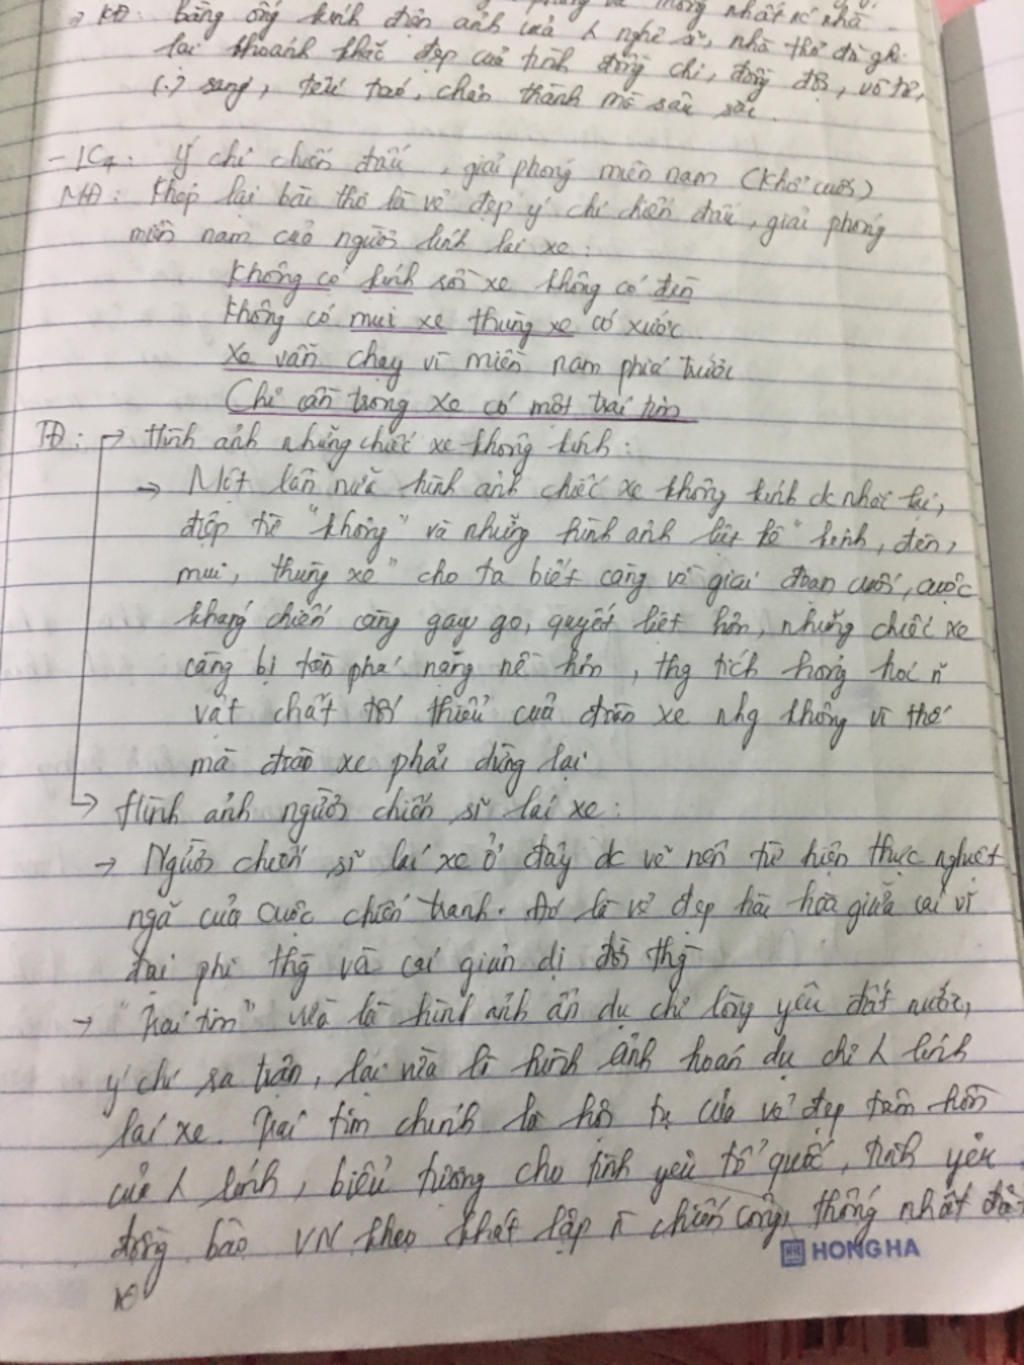 thống nhất
→ KĐ: bằng ống kính điện ảnh của λ nghệ sĩ, nhà thơ đã ghi
lại khoảnh khắc đẹp của tình đồng chí, đồng đội, vô tư,
(.) sáng, trẻ, chân thành mà sâu sắc.
- LC4: ý chí chiến đấu, giải phóng miền nam (Khổ cuối)
MĐ: Khép lại bài thơ là vẻ đẹp ý chí chiến đấu, giải phóng
miền nam của người lính lái xe:
Không có kính rồi xe không có đèn
Không có mui xe thùng xe có xước
Xe vẫn chạy vì miền nam phía trước
Chỉ cần trong xe có một trái tim
TĐ: → Hình ảnh những chiếc xe không kính:
→ Một lần nữa hình ảnh chiếc xe không kính đc nhắc lại,
điệp từ "không" và những hình ảnh liệt kê "kính, đèn,
mui, thùng xe" cho ta biết càng về giai đoạn cuối, cuộc
kháng chiến càng gay go, quyết liệt hơn, những chiếc xe
càng bị tàn phá nặng nề hơn, thg tích hỏng hóc
vật chất tối thiểu của đoàn xe nhg không vì thế
mà đoàn xe phải dừng lại
→ Hình ảnh người chiến sĩ lái xe:
→ Người chiến sĩ lái xe ở đây đc vẽ nên từ hiện thực nghiệt
ngã của cuộc chiến tranh. Đó là vẻ đẹp hài hòa giữa cái vĩ
đại phi thg và cái giản dị đời thg
→ "Trái tim" vừa là hình ảnh ẩn dụ chỉ lòng yêu đất nước,
ý chí ra trận, lại vừa là hình ảnh hoán dụ chỉ λ lính
lái xe. Trái tim chính là hội tụ của vẻ đẹp tâm hồn
của λ lính, biểu tượng cho tình yêu tổ quốc, tình yêu
đồng bào VN theo khát lập chiến công, thống nhất đất
HONG HA